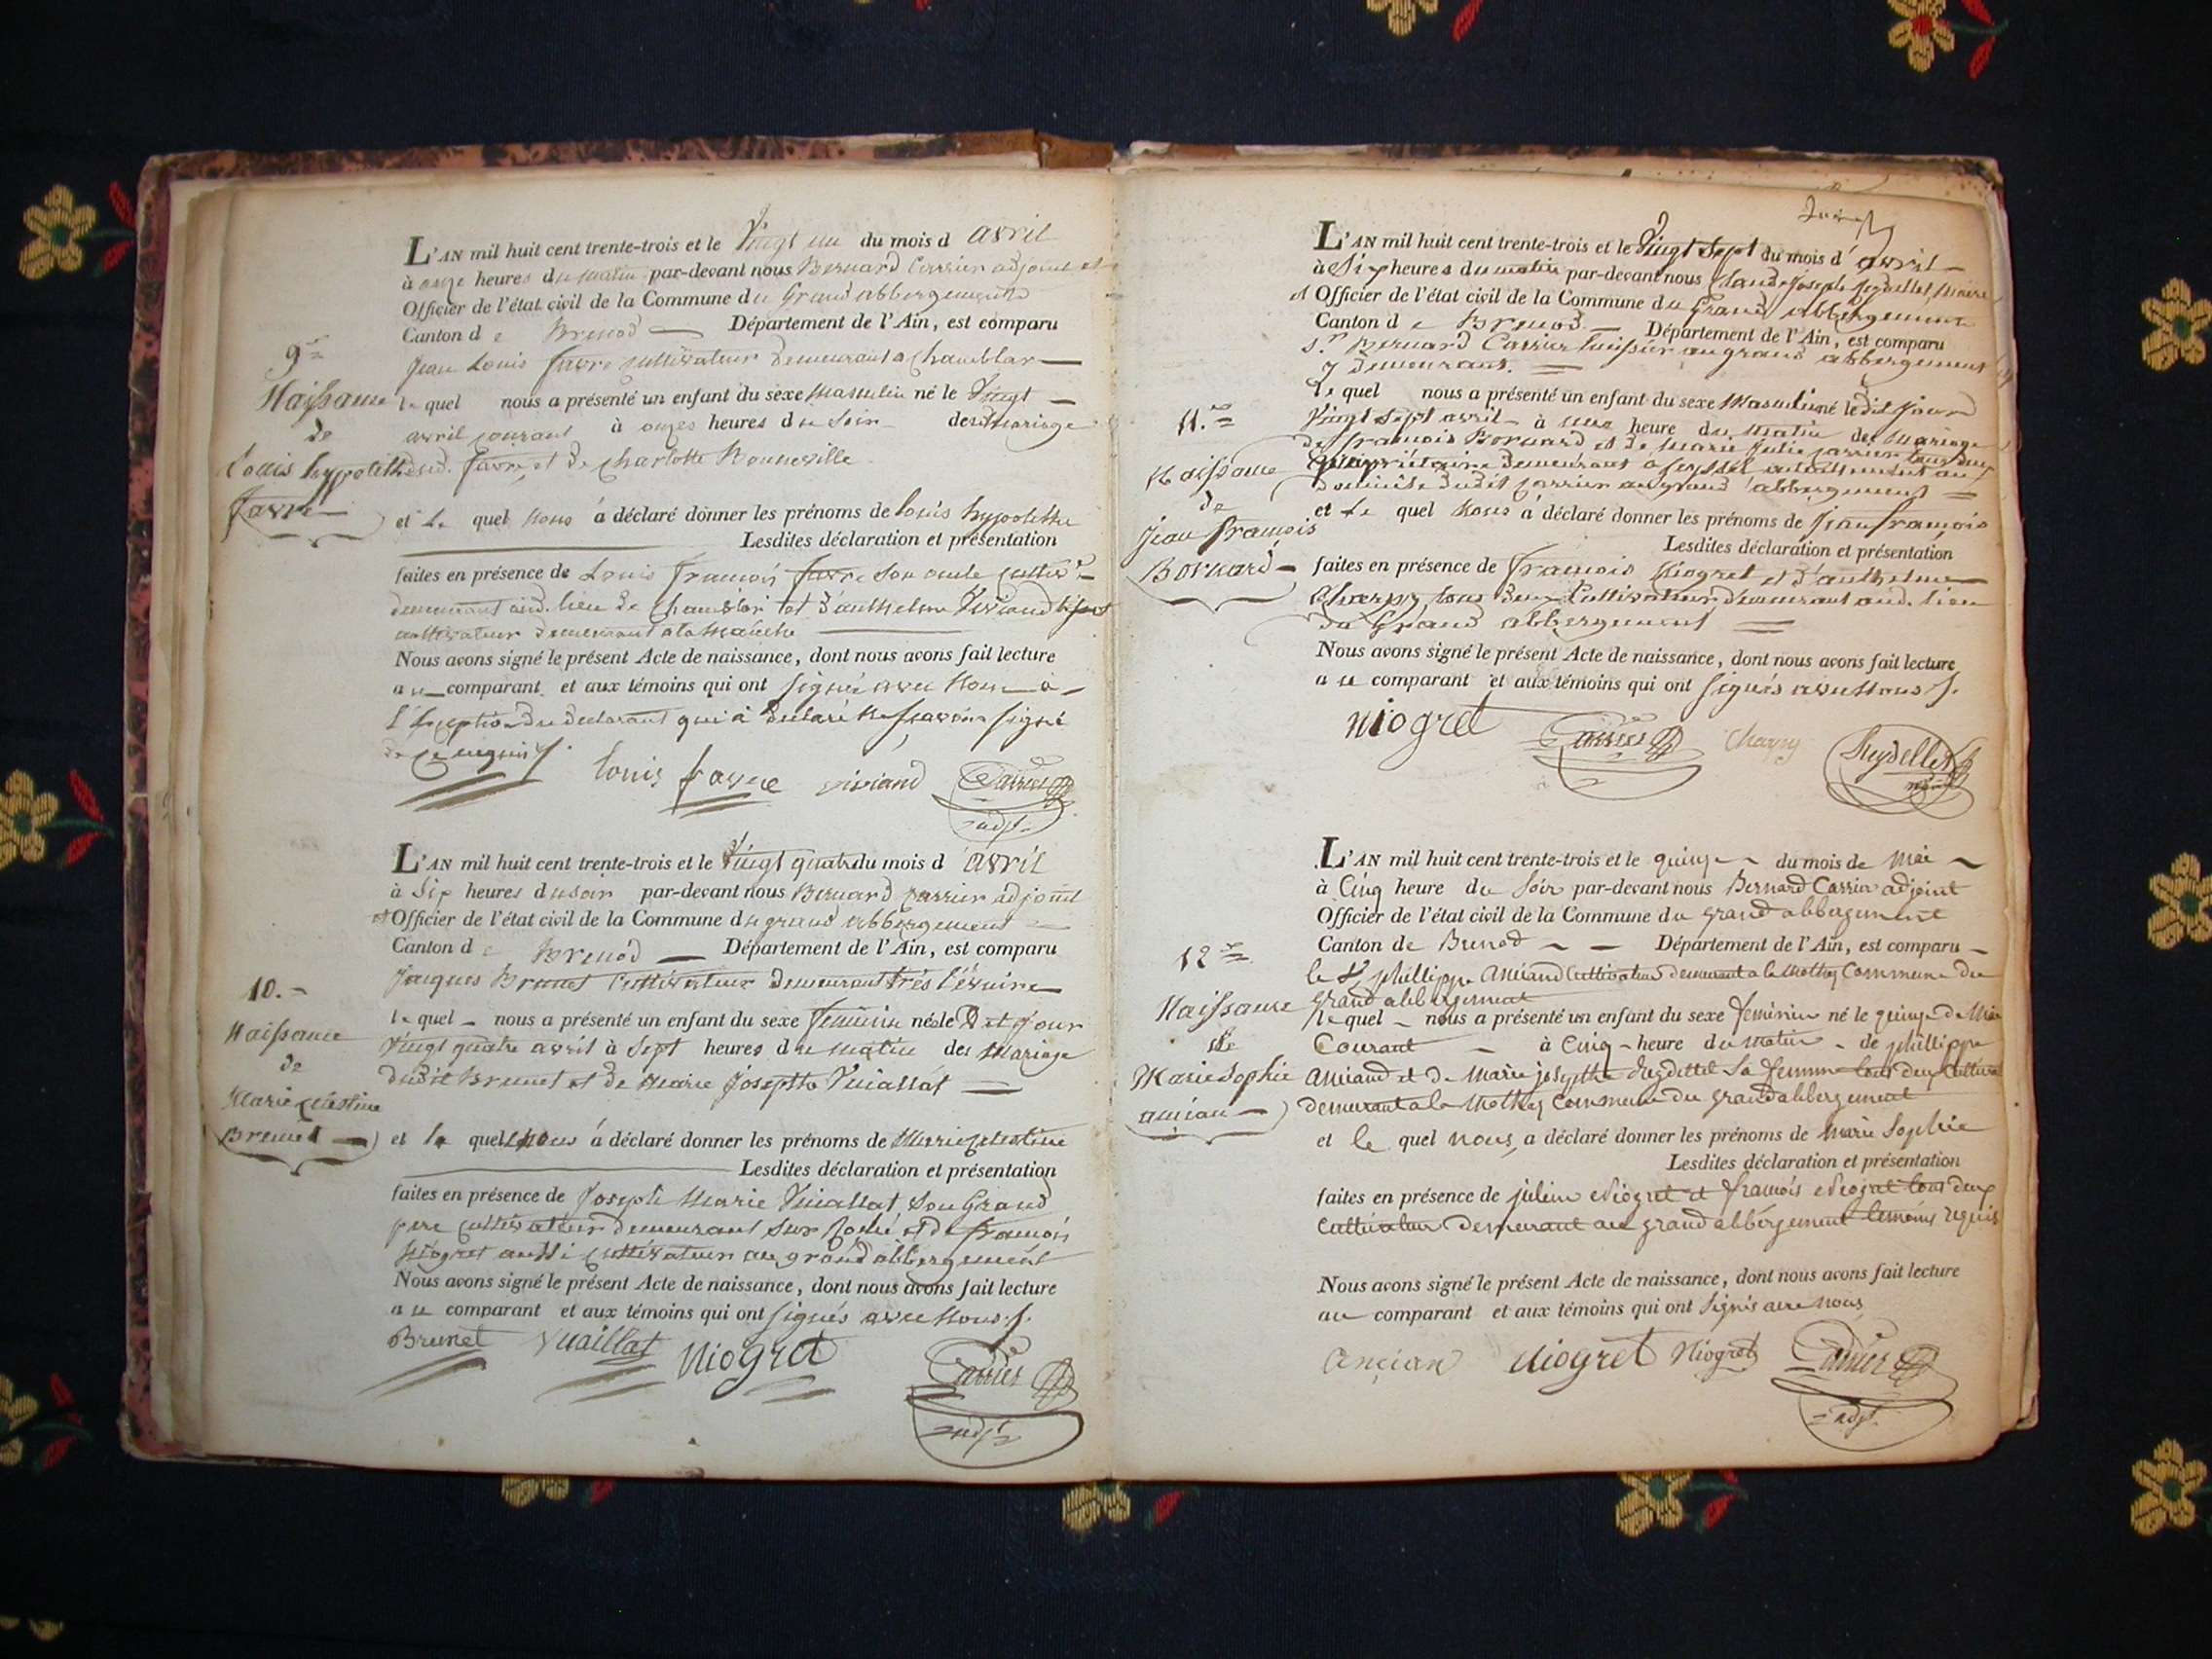 L'AN mil huit cent trente-trois et le Vingt un du mois d avril
à onze heures du matin par-devant nous Bernard Carrier adjoint et
Officier de l'état civil de la Commune du Grand abbergement
Canton d e Brenod Département de l'Ain, est comparu
Jean Louis favre cultivateur demeurant a
le quel nous a présenté un enfant du sexe Masculin né le Vingt
avril courant à onzes heures du Soir des Mariage
dud. favre, et de Charlotte Bonneville
et le quel Nous à déclaré donner les prénoms de louis hypolitte
Lesdites déclaration et présentation
faites en présence de Louis françois favre son oncle
demeurant aud. lieu de et d'anthelme Viviand
cultivateur demeurant a la
Nous avons signé le présent Acte de naissance, dont nous avons fait lecture
au comparant et aux témoins qui ont signés avec Nous à
l'exception du declarant qui à declaré ne savoir signé
de ce enquis
louis favre viviand Carrier
adjt
9me
Naissance
de
Louis hypolithe
favre
L'AN mil huit cent trente-trois et le Vingt quatre du mois d avril
à Six heures du soir par-devant nous Bernard Carrier adjoint
et Officier de l'état civil de la Commune du grand abbergement
Canton d e Brenod Département de l'Ain, est comparu
Jacques Brunet Cultivateur demeurant
le quel nous a présenté un enfant du sexe feminin né le Dit Jour
Vingt quatre avril à Sept heures du matin des Mariage
dudit Brunet et de Marie Josephte Vuiallat
et le quel Nous à déclaré donner les prénoms de Marie celestine
Lesdites déclaration et présentation
faites en présence de Joseph Marie Vuiallat, Son Grand
pere cultivateur demeurant et de françois
Niogret aussi cultivateur au grand abbergement
Nous avons signé le présent Acte de naissance, dont nous avons fait lecture
au comparant et aux témoins qui ont signés avec Nous
Brunet Vuaillat Niogret Carrier
adjt
10.
Naissance
de
Marie celestine
Brunet
L'AN mil huit cent trente-trois et le Vingt Sept du mois d' avril
à Six heures du matin par-devant nous Claude Joseph Seydellet, Maire
et Officier de l'état civil de la Commune du Grand abbergement
Canton d e Brenod Département de l'Ain, est comparu
Sr. Bernard Carrier huissier au grand abbergement
y demeurant.
le quel nous a présenté un enfant du sexe Masculin né le dit Jour
Vingt Sept avril à une heure du Matin des Mariage
de françois Bornard et de Marie Julie Carrier tous deux
propriétaire demeurant a Seyssel
domicile dudit Carrier au grand abbergement
et le quel Nous à déclaré donner les prénoms de Jean françois
Lesdites déclaration et présentation
faites en présence de françois Niogret et d'anthelme
Charpy, tous deux Cultivateur demeurant aud. lieu
du Grand abbergement
Nous avons signé le présent Acte de naissance, dont nous avons fait lecture
au comparant et aux témoins qui ont signés avec Nous
Niogret Carrier Charpy Seydellet
11.me
Naissance
de
Jean françois
Bornard
L'AN mil huit cent trente-trois et le quinze du mois de Mai
à Cinq heure du Soir par-devant nous Bernard Carrier adjoint
Officier de l'état civil de la Commune du grand abbergement
Canton de Brenod Département de l'Ain, est comparu
le Sr phillippe amiand Cultivateur demeurant a la Commune du
grand abbergement
lequel nous a présenté un enfant du sexe feminin né le quinze de Mai
Courant à Cinq heure du Matin de phillippe
et de Marie josephte Seydellet Sa femme tous deux Cultivat
demeurant a la Commune du grand abbergement
et le quel nous, a déclaré donner les prénoms de Marie Sophie
Lesdites déclaration et présentation
faites en présence de julien Niogret et françois Niogret tous deux
Cultivateur demeurant au grand abbérgement temoins requis
Nous avons signé le présent Acte de naissance, dont nous avons fait lecture
au comparant et aux témoins qui ont signés avec nous
ancian Niogret Niogret Carrier
adjt.
12me
Naissance
de
Marie Sophie